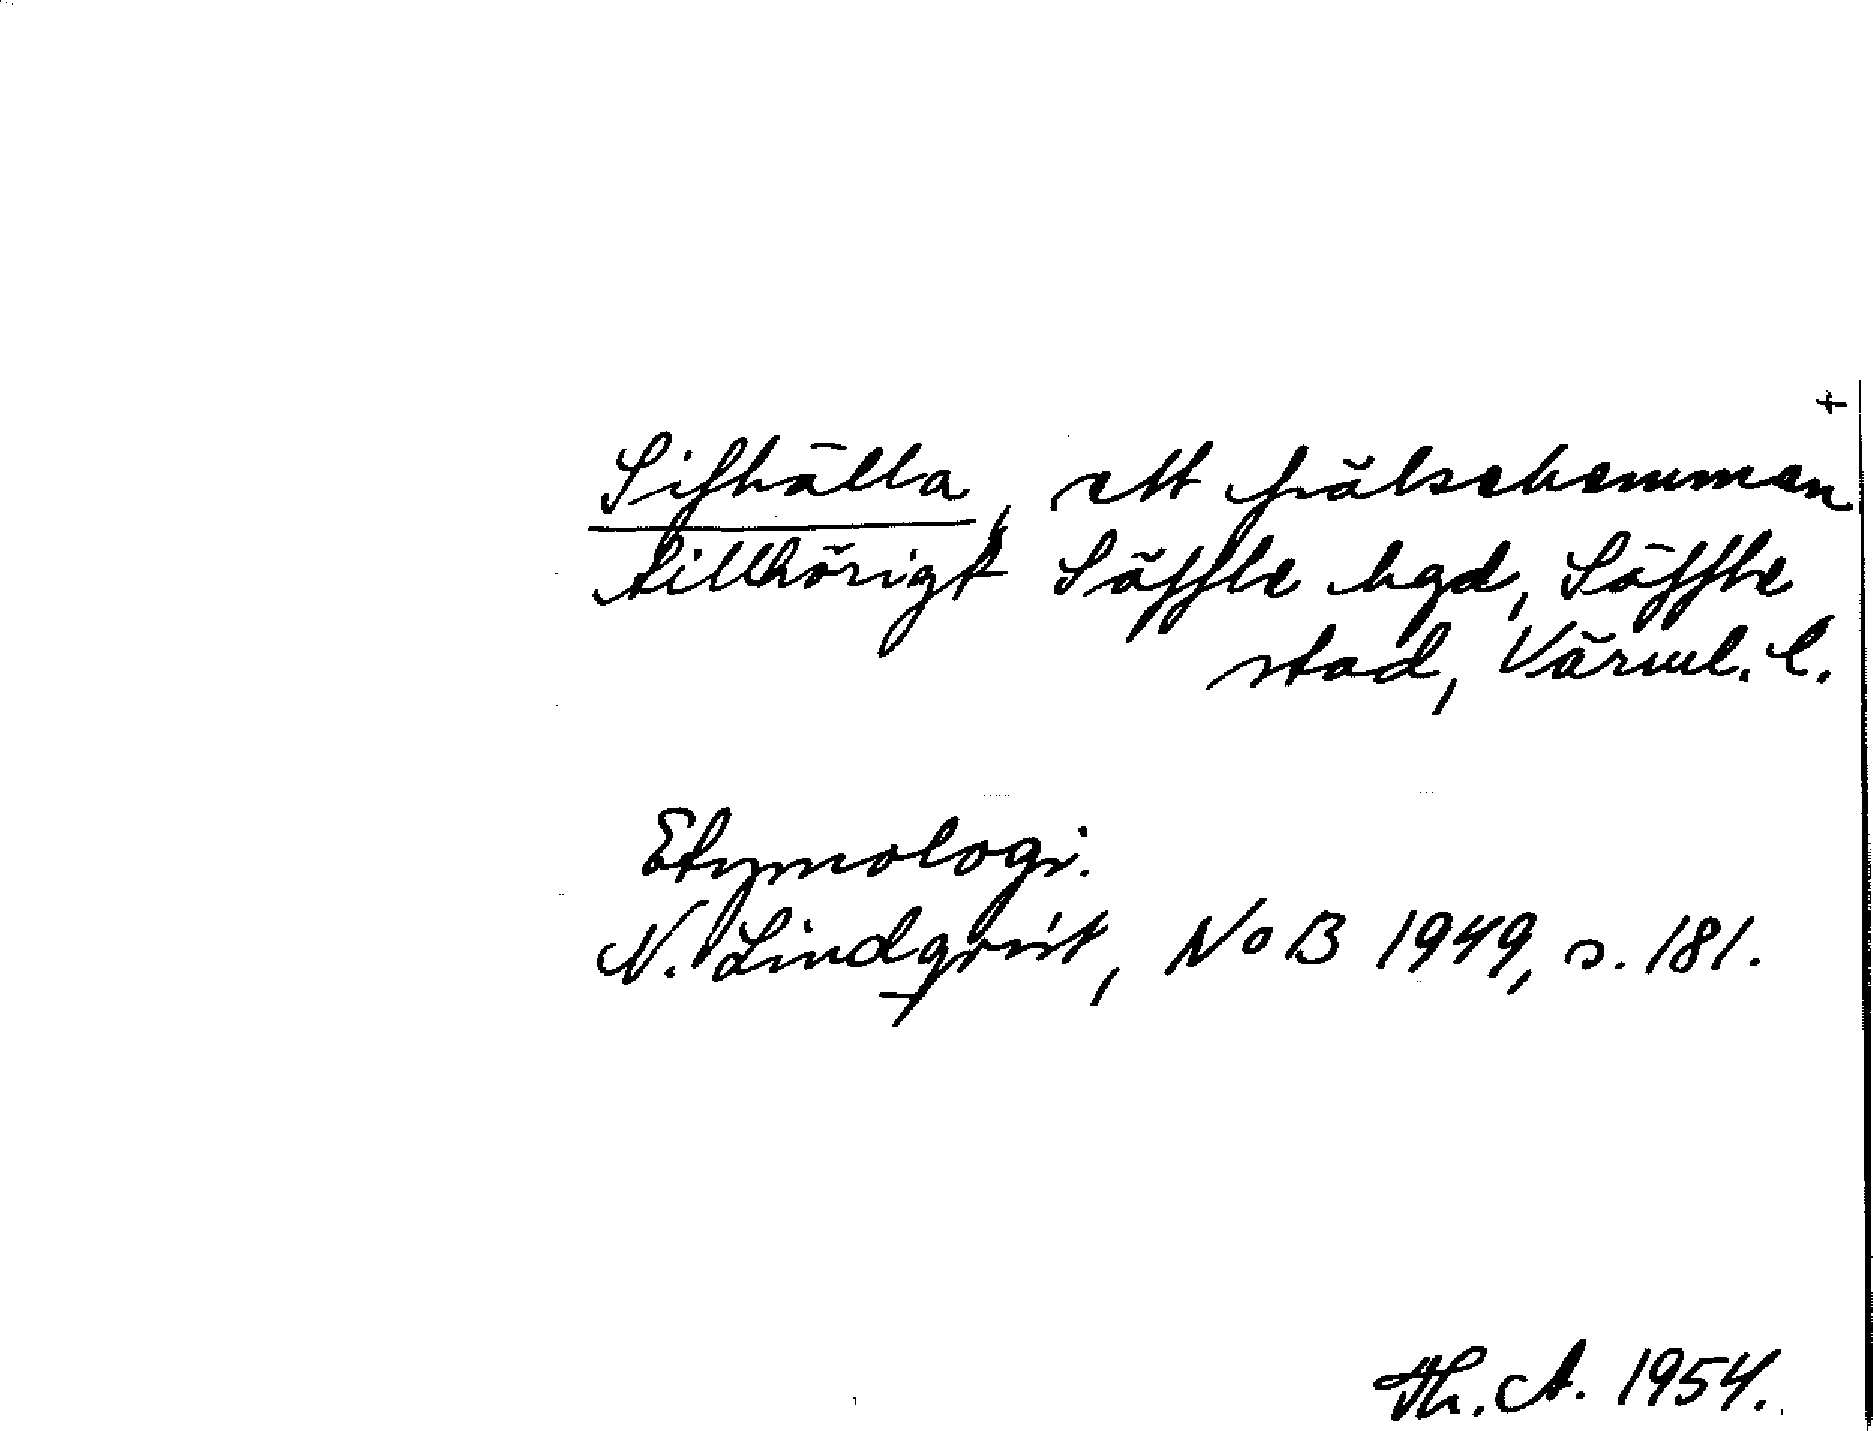 †
Sifhälla, ett frälsehemman
tillhörigt Säffle hgd, Säffle
stad, Värml. l.
Etymologi.
N. Lindqvist, NoB 1949, s. 181.
Th. A. 1954.